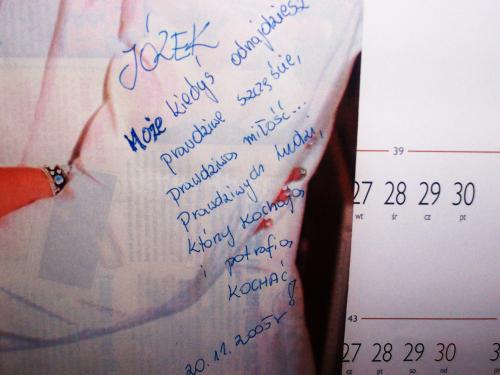 JÓZEK
Może kiedyś odnajdziesz
prawdziwe szczęście,
Prawdziwą miłość...
Prawdziwych ludzi,
którzy kochają
i potrafią
KOCHAĆ
20.11.2005r
39
27 28 29 30
wt śr cz pt
43
27 28 29 30 3
cz pt so nd p